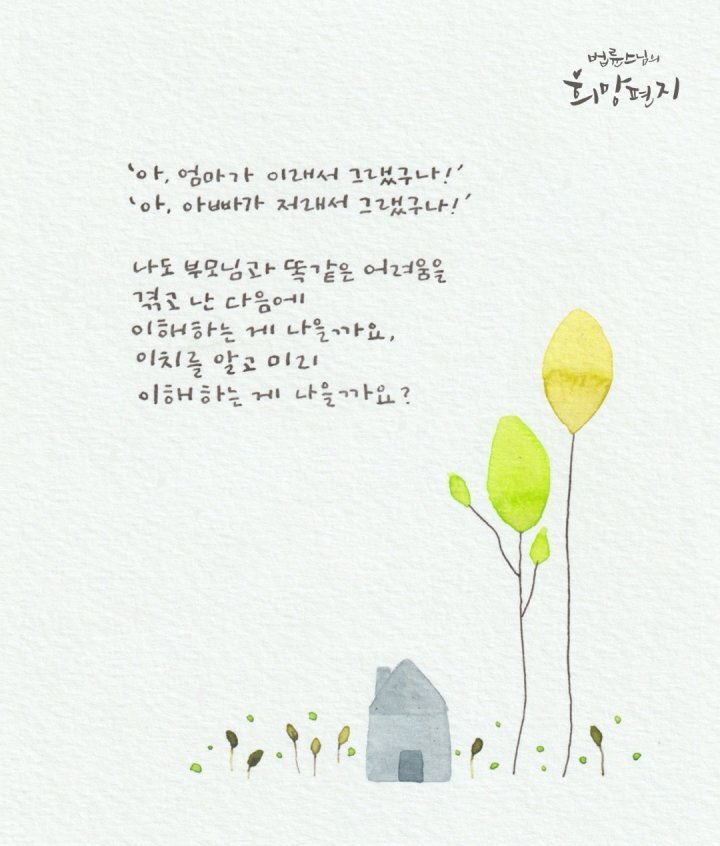 법륜스님의
희망편지
'아, 엄마가 이래서 그랬구나!'
'아, 아빠가 저래서 그랬구나!'
나도 부모님과 똑같은 어려움을
겪고 난 다음에
이해하는 게 나을까요,
이치를 알고 미리
이해하는 게 나을까요?